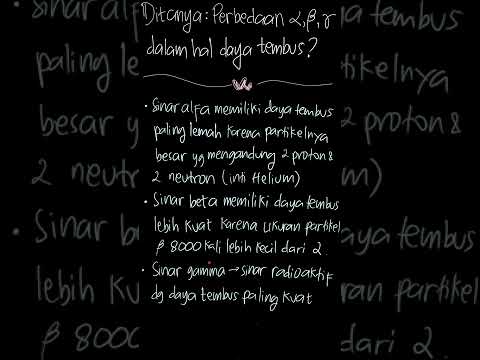 Ditanya: Perbedaan α, β, γ
dalam hal daya tembus?
• Sinar alfa memiliki daya tembus
paling lemah karena partikelnya
besar yg mengandung 2 proton &
2 neutron (inti Helium)
• Sinar beta memiliki daya tembus
lebih kuat karena ukuran partikel
β 8000 kali lebih kecil dari α.
• Sinar gamma → sinar radioaktif
dg daya tembus paling kuat